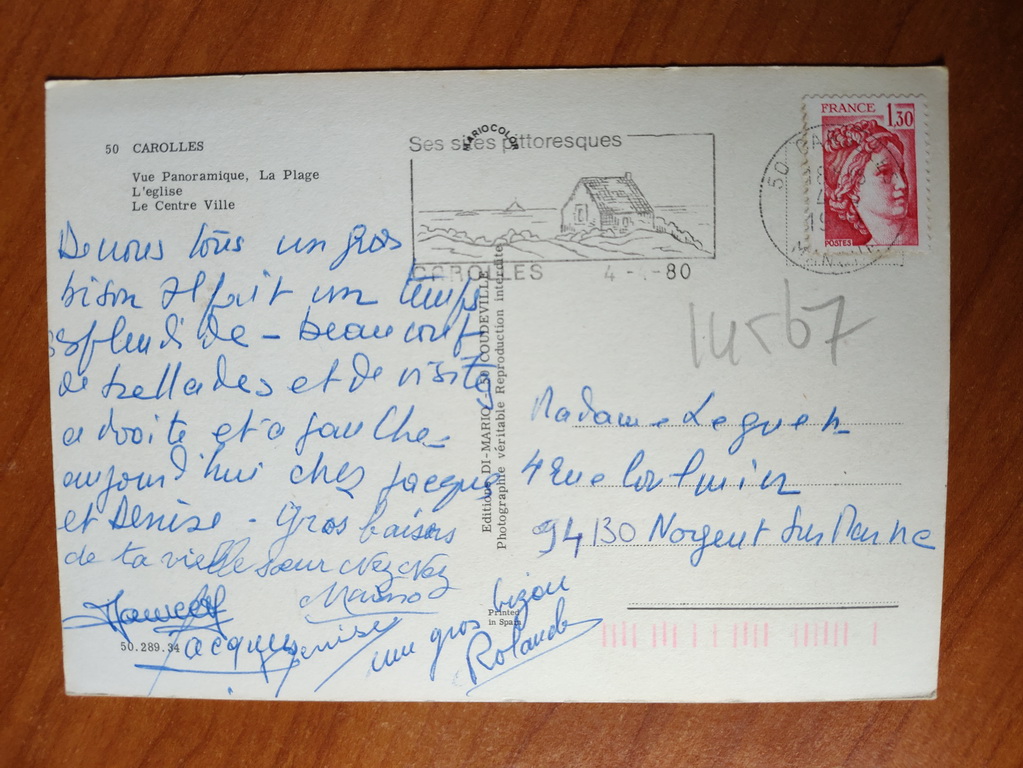 50 CAROLLES
Vue Panoramique, La Plage
L'eglise
Le Centre Ville
MARIOCOLOR
Ses sites pittoresques
CAROLLES 4 - - 80
FRANCE 1,30
POSTES
50 CA
MANCHE
De nous tous un gros
bison Il fait un temps
splendide - beaucoup
de ballades et de visites
a droite et a gauche -
aujourd'hui chez Jacques
et Denise - Gros baisers
de ta vieille soeur
Jacques Denise
un gros bizou
Rolande
Editions DI-MARIO - 50 COUDEVILLE
Photographe véritable Reproduction interdite
Printed
in Spain
50.289.34
14567
Madame Leguen
4 Rue
94130 Nogent sur Marne